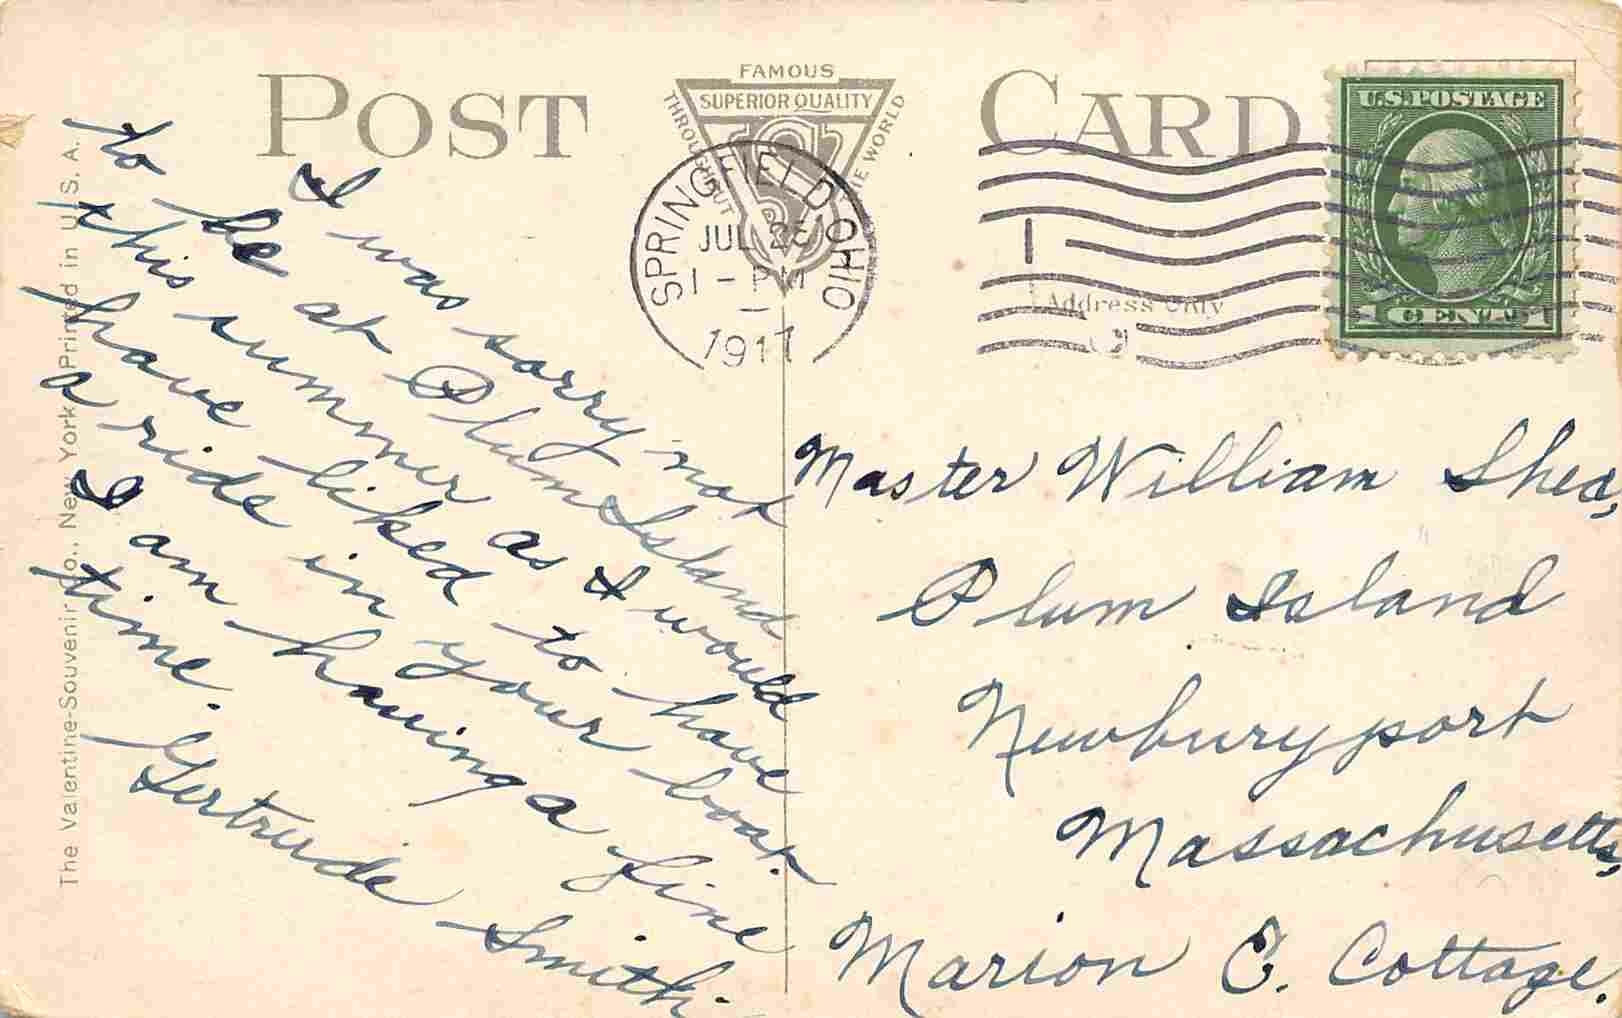 POST CARD
FAMOUS
THROUGHOUT THE WORLD
SUPERIOR QUALITY
SPRINGFIELD OHIO
JUL
1 - PM
1911
U.S. POSTAGE
1 CENT 1
Address Only
The Valentine-Souvenir Co., New York Printed in U. S. A.
I was sorry not
to be at Plum Island
this summer as I would
have liked to have
a ride in your boat
I am having a fine
time.
Gertrude Smith.
Master William Shed,
Plum Island
Newburyport
Massachusetts,
Marion E. Cottage.